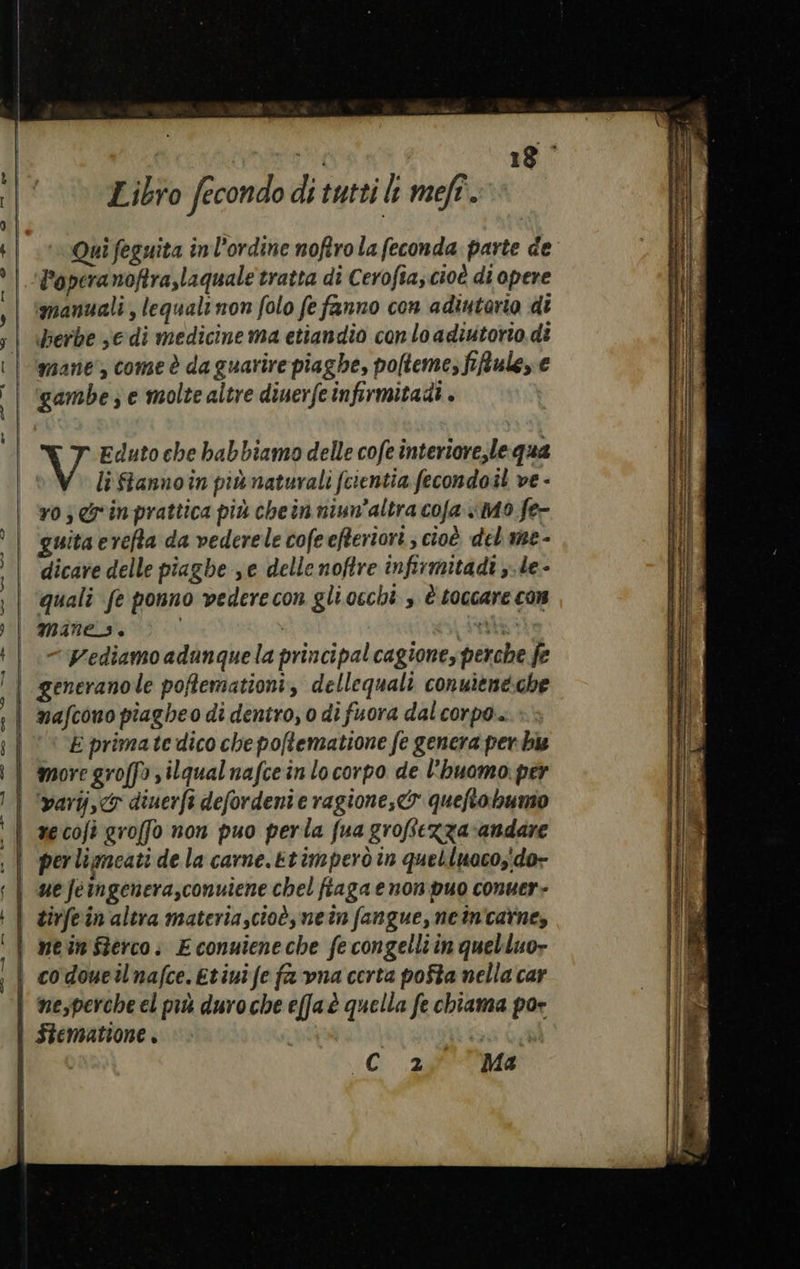 18
Libro ſecondo di tutti li meſi.
Qui ſeguita in l'ordine noſtro la ſeconda parte de
l'opera noſtra, laquale tratta di Ceroſia, cioè di opere
manuali, lequali non ſolo ſe fanno con adiutorio di
herbe, e di medicine ma etiandio con lo adiutorio di
mane, come è da guarire piaghe, poſteme, fiſtule, e
gambe, e molte altre diuerſe infirmitadi.
VEduto che habbiamo delle coſe interiore, le qua
li ſtanno in più naturali ſcientia ſecondo il ve-
ro, & in prattica più che in niun'altra coſa. Mo ſe-
guita e reſta da vedere le coſe eſteriori, cioè del me-
dicare delle piaghe, e delle noſtre infirmitadi, le-
quali ſe ponno vedere con gli occhi, è toccare con
mane s.
Vediamo adunque la principal cagione, perche ſe
generano le poſtemationi, dellequali conuiene che
naſcono piaghe o di dentro, o di fuora dal corpo.
E prima te dico che poſtematione ſe genera per hu
more groſſo, ilqual naſce in lo corpo de l'huomo per
varij, & diuerſi deſordeni e ragione, & queſto humo
re coſi groſſo non puo per la ſua groſſezza andare
per ligacati de la carne. Et imperò in quel luoco, do-
ue ſe ingenera, conuiene chel ſtaga e non puo conuer-
tirſe in altra materia, cioè, ne in ſangue, ne in carne,
ne in ſterco. E conuiene che ſe congelli in quel luo-
co doue il naſce. Et iui ſe fa vna certa poſta nella car
ne, perche el più duro che eſſa è quella ſe chiama po-
ſtematione.
C 2 Ma